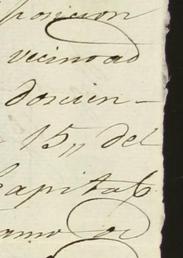 posicion
vicino ad
doscien-
15,, del
Capital
amo